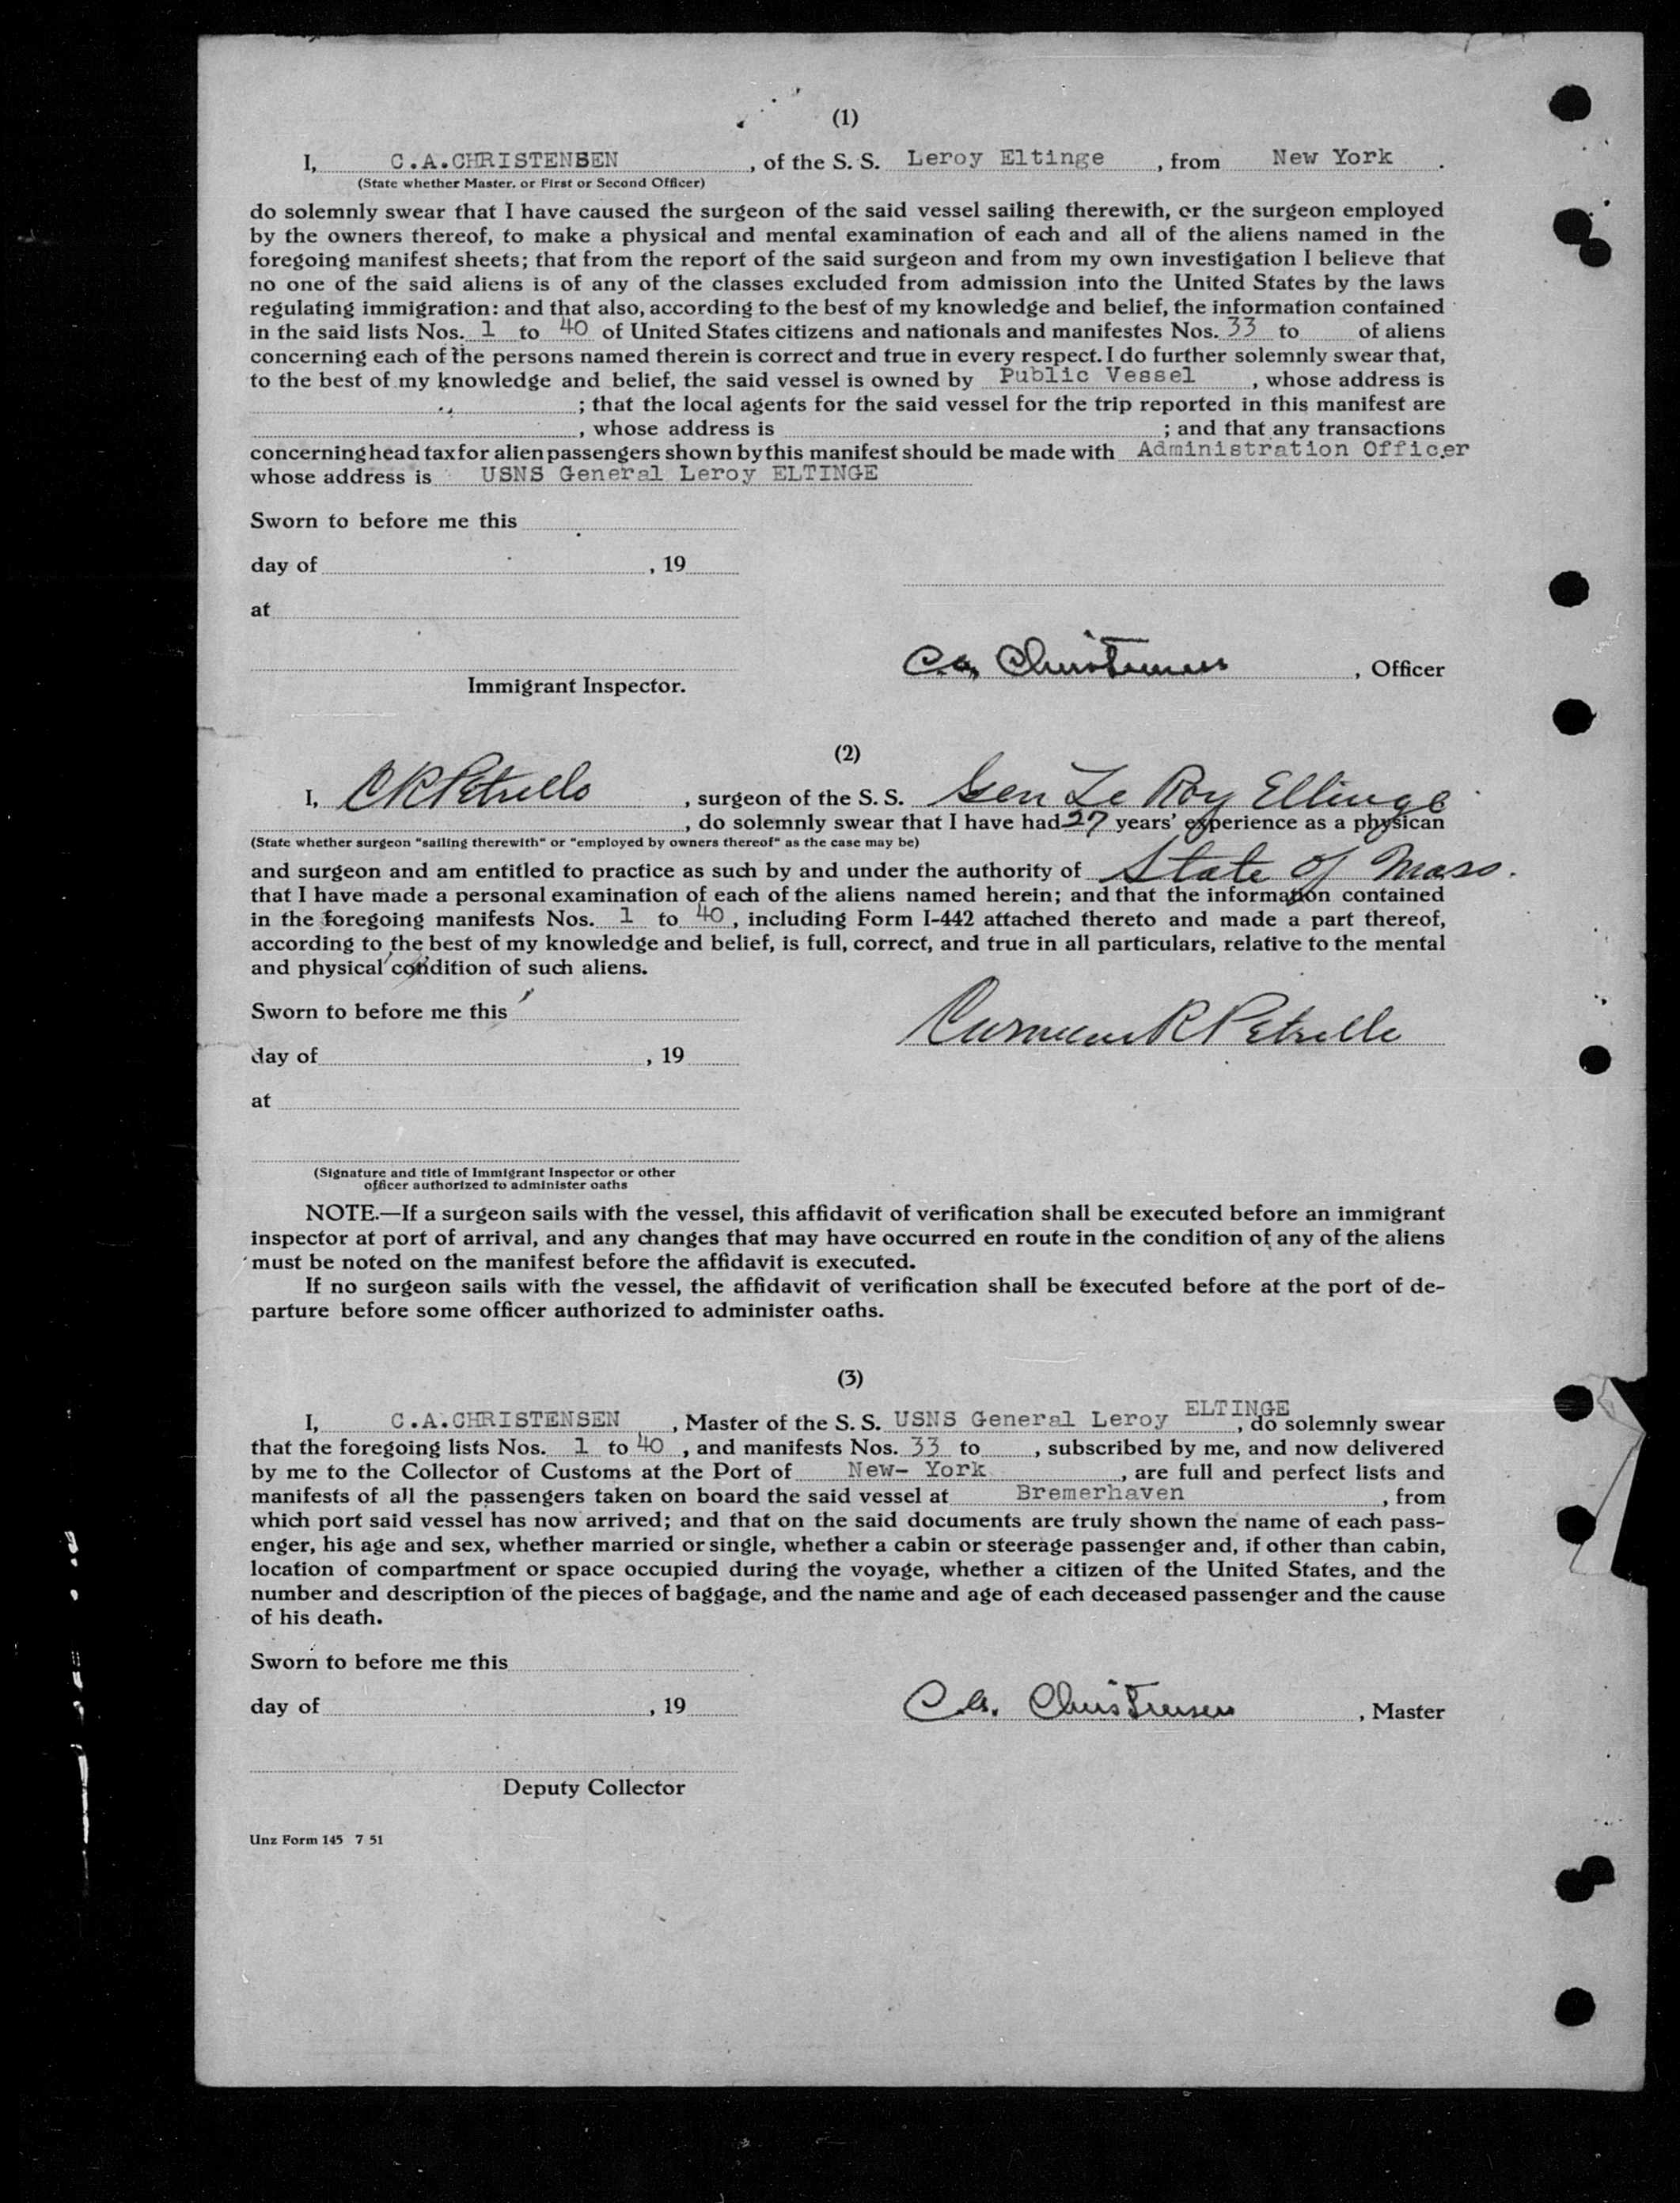 (1)
I, C.A.CHRISTENSEN, of the S. S. Leroy Eltinge, from New York.
(State whether Master, or First or Second Officer)
do solemnly swear that I have caused the surgeon of the said vessel sailing therewith, or the surgeon employed
by the owners thereof, to make a physical and mental examination of each and all of the aliens named in the
foregoing manifest sheets; that from the report of the said surgeon and from my own investigation I believe that
no one of the said aliens is of any of the classes excluded from admission into the United States by the laws
regulating immigration: and that also, according to the best of my knowledge and belief, the information contained
in the said lists Nos. 1 to 40 of United States citizens and nationals and manifestes Nos. 33 to of aliens
concerning each of the persons named therein is correct and true in every respect. I do further solemnly swear that,
to the best of my knowledge and belief, the said vessel is owned by Public Vessel, whose address is
; that the local agents for the said vessel for the trip reported in this manifest are
, whose address is ; and that any transactions
concerning head tax for alien passengers shown by this manifest should be made with Administration Officer
whose address is USNS General Leroy ELTINGE
Sworn to before me this
day of , 19
at
C.A. Christensen, Officer
Immigrant Inspector.
(2)
I, C R Petrello, surgeon of the S. S. Gen Le Roy Ellinge
, do solemnly swear that I have had 27 years' experience as a physican
(State whether surgeon "sailing therewith" or "employed by owners thereof" as the case may be)
and surgeon and am entitled to practice as such by and under the authority of State of Mass.
that I have made a personal examination of each of the aliens named herein; and that the information contained
in the foregoing manifests Nos. 1 to 40, including Form I-442 attached thereto and made a part thereof,
according to the best of my knowledge and belief, is full, correct, and true in all particulars, relative to the mental
and physical condition of such aliens.
Sworn to before me this
R Petrello
day of , 19
at
(Signature and title of Immigrant Inspector or other
officer authorized to administer oaths
NOTE.—If a surgeon sails with the vessel, this affidavit of verification shall be executed before an immigrant
inspector at port of arrival, and any changes that may have occurred en route in the condition of any of the aliens
must be noted on the manifest before the affidavit is executed.
If no surgeon sails with the vessel, the affidavit of verification shall be executed before at the port of de-
parture before some officer authorized to administer oaths.
(3)
I, C.A.CHRISTENSEN, Master of the S. S. USNS General Leroy ELTINGE, do solemnly swear
that the foregoing lists Nos. 1 to 40, and manifests Nos. 33 to , subscribed by me, and now delivered
by me to the Collector of Customs at the Port of New- York, are full and perfect lists and
manifests of all the passengers taken on board the said vessel at Bremerhaven, from
which port said vessel has now arrived; and that on the said documents are truly shown the name of each pass-
enger, his age and sex, whether married or single, whether a cabin or steerage passenger and, if other than cabin,
location of compartment or space occupied during the voyage, whether a citizen of the United States, and the
number and description of the pieces of baggage, and the name and age of each deceased passenger and the cause
of his death.
Sworn to before me this
day of , 19
C.A. Christensen, Master
Deputy Collector
Unz Form 145 7 51